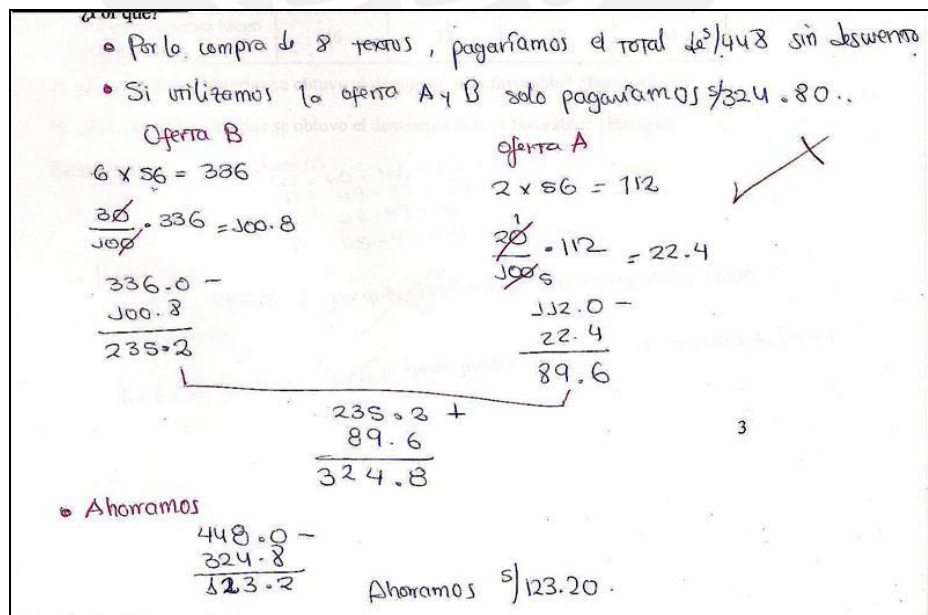 ¿Por qué?
• Por la compra de 8 textos, pagaríamos el total de S/448 sin descuento
• Si utilizamos la oferta A y B solo pagaríamos S/324.80..
Oferta B
6 x 56 = 336
30/100 . 336 = 100.8
336.0 -
100.8
235.2
Oferta A
2 x 56 = 112
20/100 . 112 = 22.4
1
5
112.0 -
22.4
89.6
235.2 +
89.6
324.8
3
• Ahorramos
448.0 -
324.8
123.2
Ahorramos S/123.20.